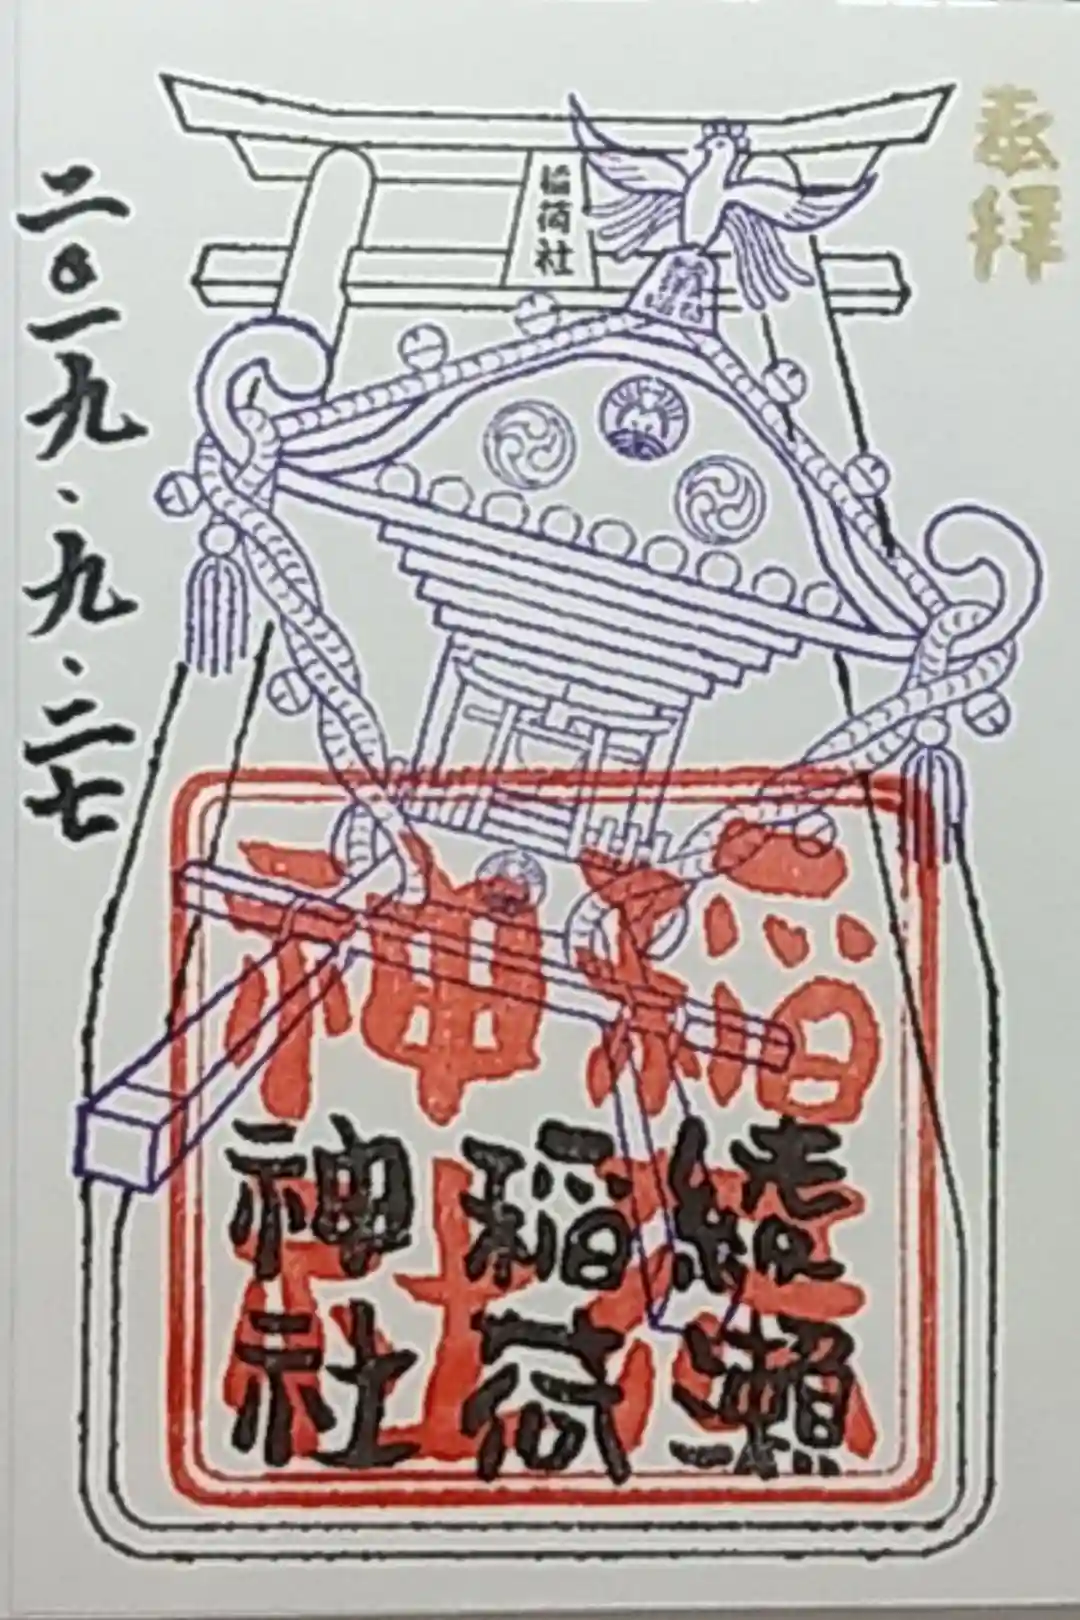 奉拝
稲荷社
綾瀬
稲荷
神社
稲荷神社
二〇一九、九、二七